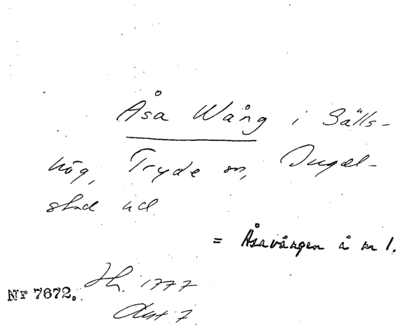 Åsa Wång i Bälls-
hög, Tryde sn, Ingel-
stad hd
= Åsavången å n 1.
Nr 7672. Jh. 1777
Akt 7